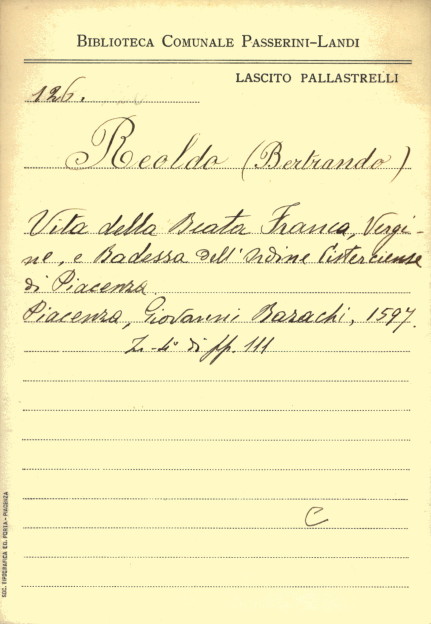 BIBLIOTECA COMUNALE PASSERINI-LANDI
LASCITO PALLASTRELLI
126.
Reoldo (Bertrando)
Vita della Beata Franca, Vergi-
ne, e Badessa dell'ordine Cisterciense
di Piacenza.
Piacenza, Giovanni Bazachi, 1597.
di pp. 111
C
SOC. TIPOGRAFICA ED. PORTA - PIACENZA